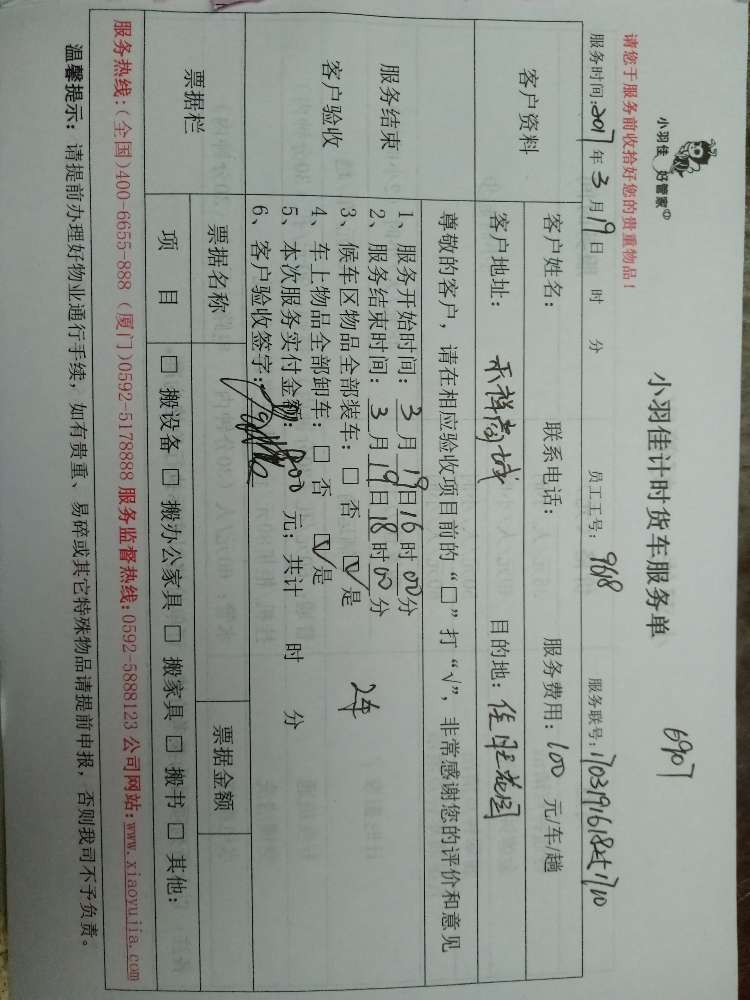 小羽佳 好管家
小羽佳计时货车服务单
6907
请您于服务前收拾好您的贵重物品！
服务时间：2017年3月19日 时 分 员工工号：968 服务联号：
客户资料
客户姓名： 联系电话： 服务费用：100 元/车/趟
客户地址： 禾祥商城 目的地：佳胜花园
尊敬的客户，请在相应验收项目前的“□”打“√”，非常感谢您的评价和意见
服务结束
客户验收
1、服务开始时间：3月19日16时00分
2、服务结束时间：3月19日18时00分
3、候车区物品全部装车：□ 否 ☑是 2车
4、车上物品全部卸车：□ 否 ☑是
5、本次服务实付金额：200元；共计 时 分
6、客户验收签字：
票据栏
票据名称 票据金额
项 目 □ 搬设备 □ 搬办公家具 □ 搬家具 □ 搬书 □ 其他：
服务热线：(全国)400-6655-888 (厦门)0592-5178888 服务监督热线：0592-5888123 公司网站：www.xiaoyujia.com
温馨提示：请提前办理好物业通行手续；如有贵重、易碎或其它特殊物品请提前申报，否则我司不予负责。